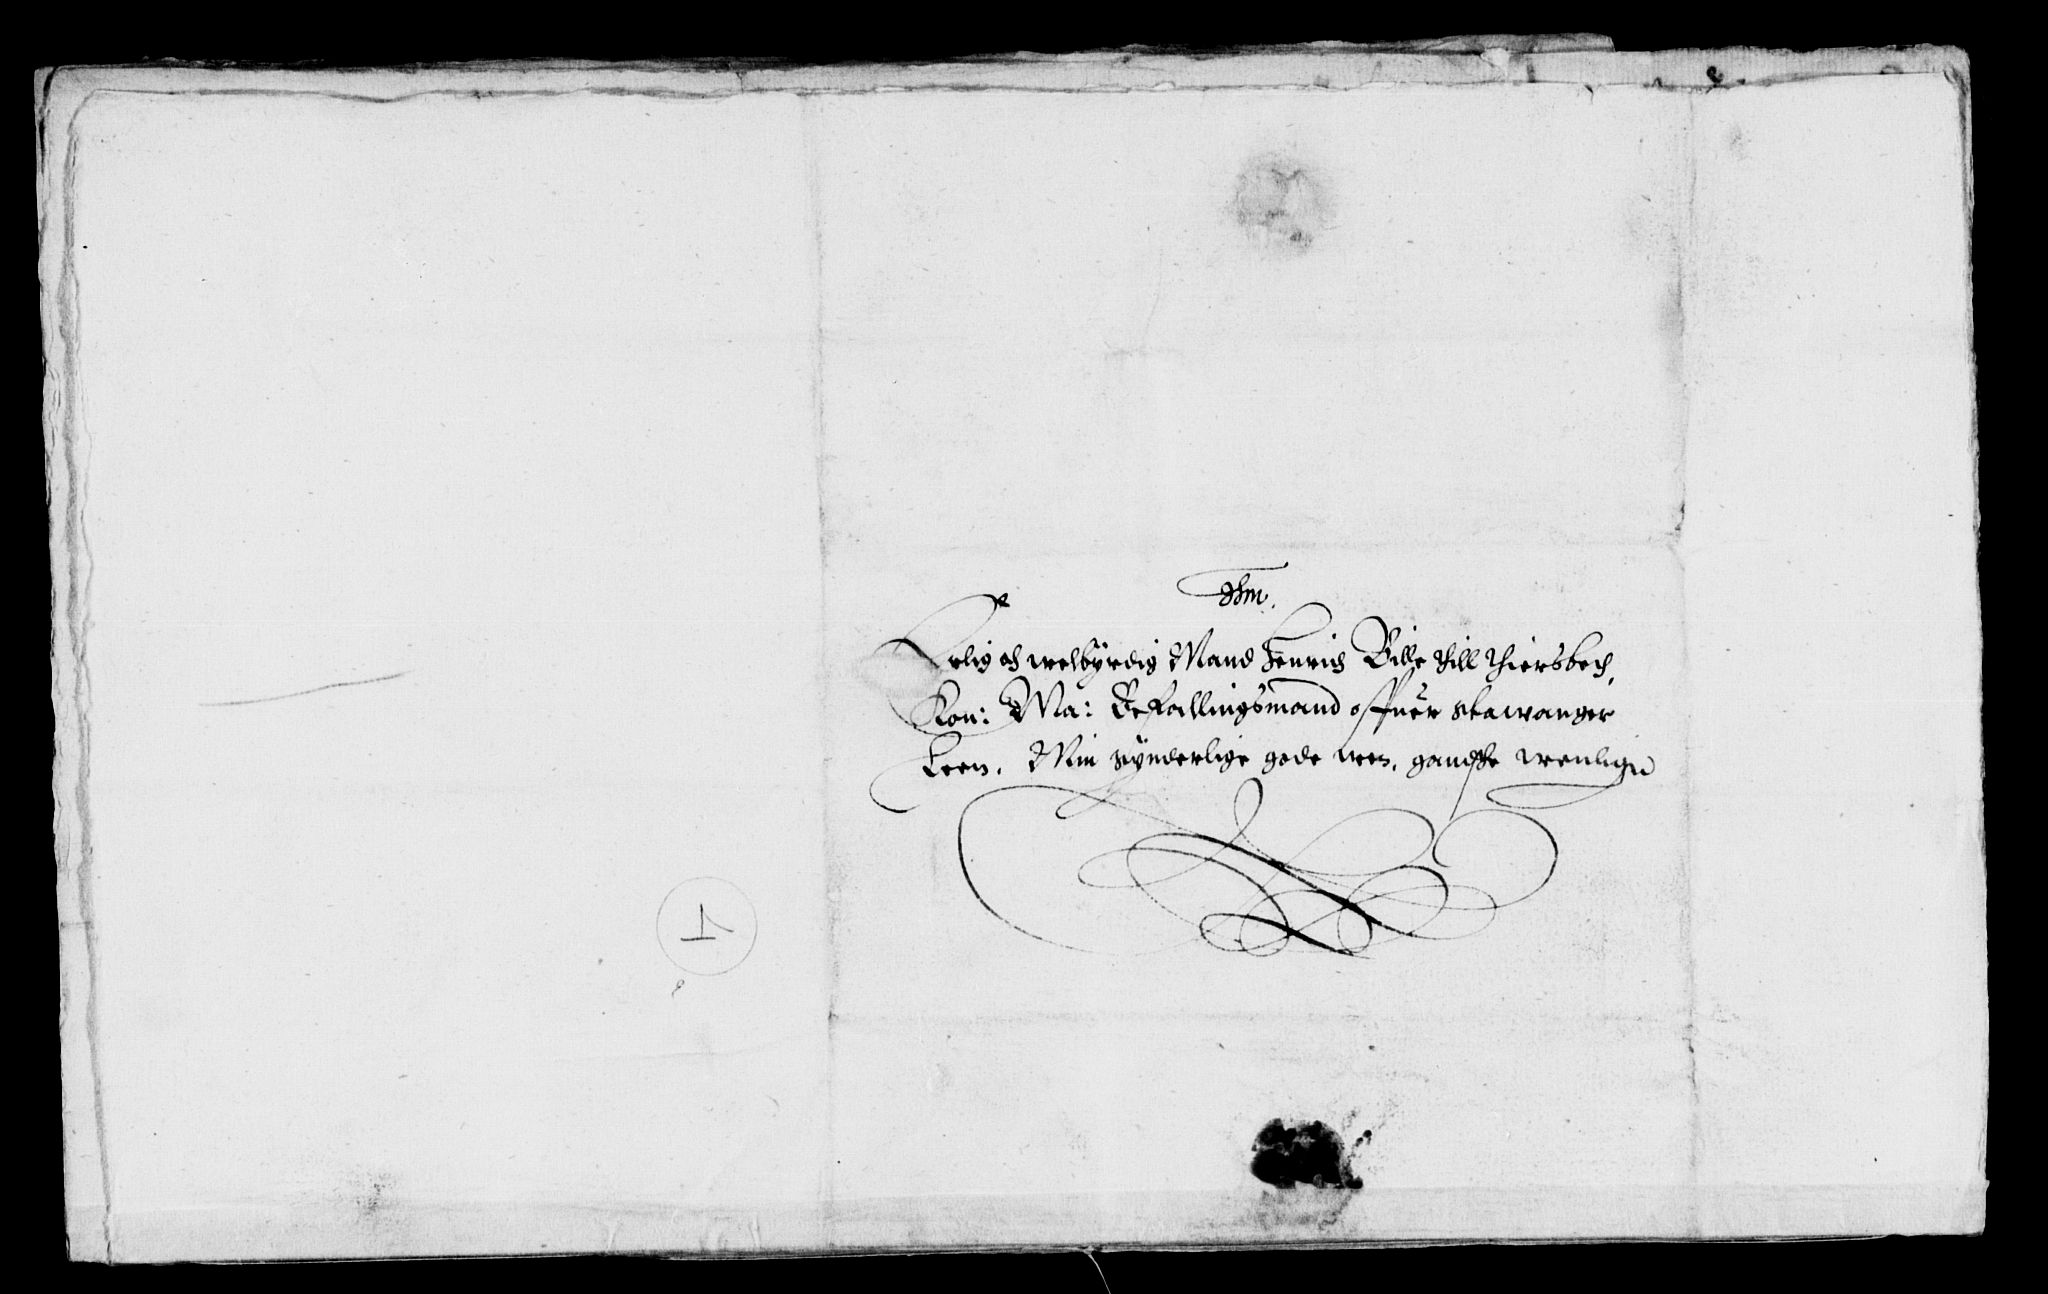 Erlig och welbyrdig Mand Henrich Bille till Thiersbech,
Kon: Ma: Befallingsmand offuer Stawanger
Leen, Min synderlige gode wen, gandske wenligen
1